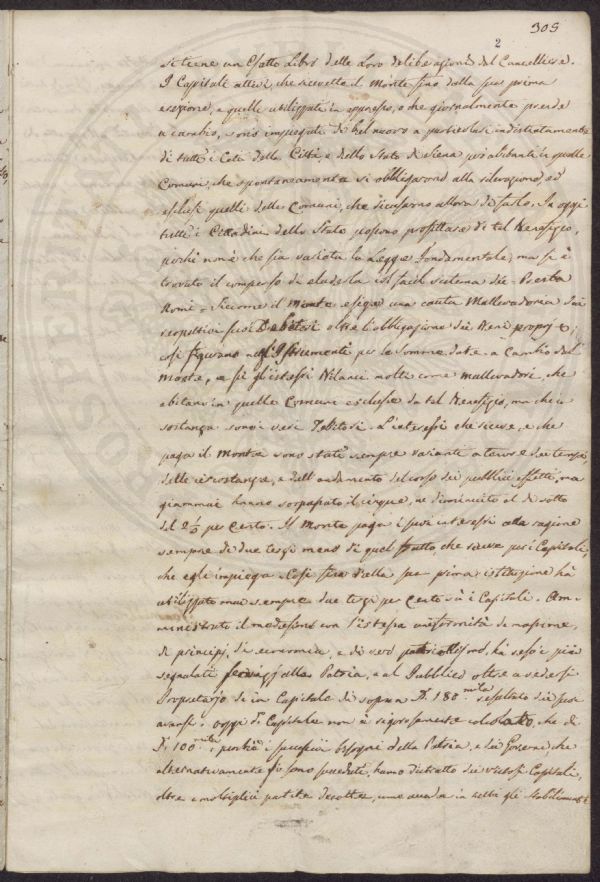 309
2
si tiene un Esatto Libro delle Loro deliberazioni dal Cancelliere.
I Capitali attivi, che ricevette il Monte fino dalla sua prima
erezione, e quelli utilizzati in appresso, e che giornalmente prende
a cambio, sono impiegati di bel nuovo a particolari indistintamente
di tutti i Ceti della Città, e dello Stato di Siena per abitanti in quelle
Comuni, che spontaneamente si obbligarono alla rilevazione, ed
esclusi quelli delle Comuni, che ricusarono allora di farlo. In oggi
tutti i Cittadini dello Stato possono profittare di tal Benefizio,
perchè non è che sia variata la Legge fondamentale, ma si è
trovato il compenso di eluderla col facil sistema dei Presta
Nomi. Siccome il Monte esige una cauta Mallevadoria dai
respettivi suoi Debitori oltre l'obbligazione dei Beni proprj;
così figurano negl'Istrumenti per le somme date a Cambio dal
Monte, e per gl'istessi Bilanci molti come mallevadori, che
abitano in quelle Comuni escluse da tal Benefizio, ma che in
sostanza sono i veri Debitori. L'interessi che riceve, e che
paga il Monte sono stati sempre varianti a tenore dei tempi,
delle circostanze, e dell'andamento del corso dei pubblici effetti, ma
giammai hanno sorpassato il cinque, nè diminuito al di sotto
del 2 1/3 per Cento. Il Monte paga i suoi interessi alla ragione
sempre di due terzi meno di quel frutto che riceve per i Capitali,
che egli impiega. Così fino dalla sua prima istituzione hà
utilizzato mai sempre due terzi per Cento sù i Capitali. Am-
ministrato il medesimo con l'istessa uniformità di massime,
di principj, di economia, e di vero patriottismo, hà reso i più
segnalati servizj alla Patria, e al Pubblico oltre a vedersi
Proprietario di un Capitale di sopra D. 180 mila resultato dei suoi
avanzi. Oggi il Capitale non è rigorosamente calcolato, che di
D. 100 mila, perchè i successivi bisogni della Patria, e dei Governi, che
alternativamente si sono succeduti, hanno distratto dei vistosi Capitali,
oltre a molteplici partite decotte, une avendo in tutti gli Stabilimenti